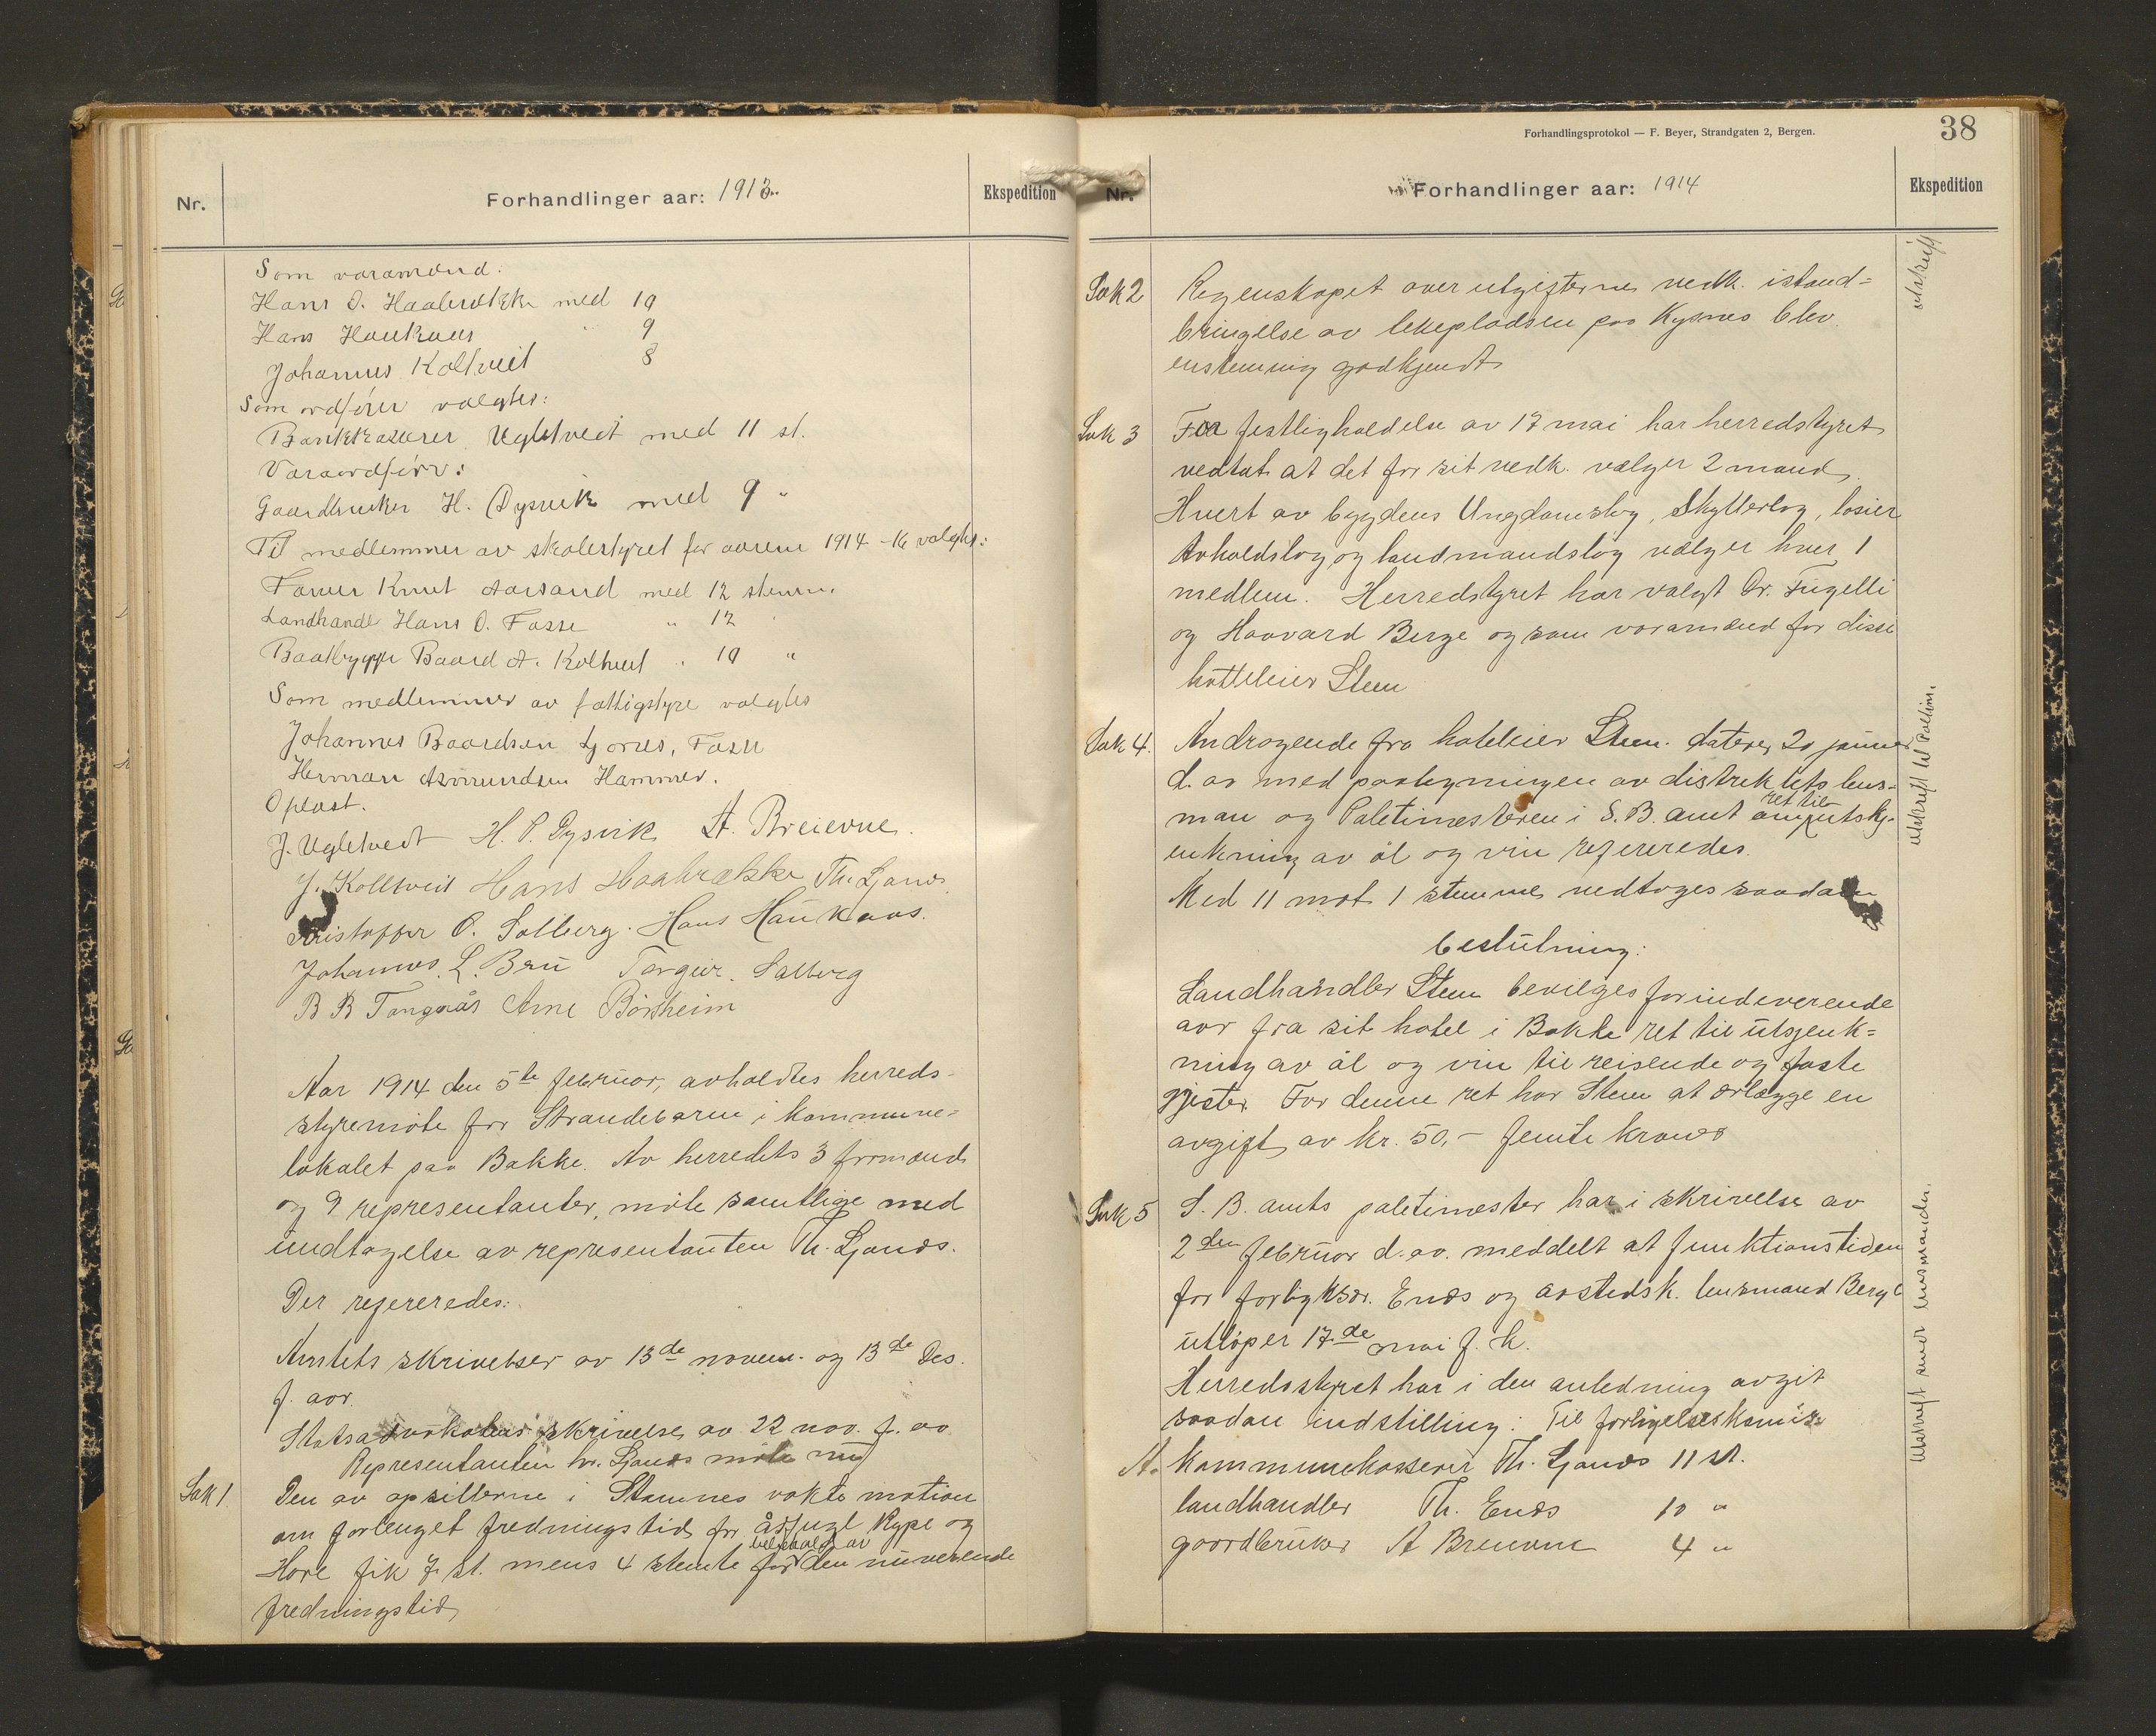 Nr.
Forhandlinger aar: 1913.
Ekspedition
Som varamænd:
Hans O. Haabrække med 10
Hans Haukaas " 9
Johannes Koltveit 8
Som ordfører valgtes:
Bankkaserer Ugletveit med 11 st.
Varaordfører:
Gaardbruker H. Dysvik med 9 "
Til medlemmer av skolestyret for aarene 1914-16 valgtes:
Farver Knut Aarsand med 12 stemm.
Landhandl Hans O. Fosse " 12 "
Baatbygger Baard A. Koltveit " 10 "
Som medlemmer av fattigstyre valgtes
Johannes Baardsen Ljones, Fosse
Herman Asmundsen Hammer.
Oplæst.
J. Ugletvedt H. P. Dysvik A. Breievne.
J. Koltveit Hans Haabrække Th. Ljones
Kristoffer O. Solberg. Hans Haukaas.
Johannes L. Bru Torgeir Solberg
B B Tangerås Arne Børsheim
Aar 1914 den 5te februar, avholdtes herreds-
styremøte for Strandebarm i kommune-
lokalet paa Bakke. Av herredets 3 formænd
og 9 representanter, møte samtlige med
undtagelse av representanten Th. Ljones.
Der refereredes:
Amtets skrivelser av 13de novem. og 13de Des.
f. aar.
Statsadvokatens skrivelse av 22 nov. f. aa.
Representanten hr. Ljones møte nu
Sak 1. Den av opsitterne i Stamnes vakte motion
om forlenget fredningstid for årfugl Rype og
bibehold av
Hare fik 7 st. mens 4 stemte for den nuverende
fredningstid
Forhandlingsprotokol — F. Beyer, Strandgaten 2, Bergen.
38
Nr.
Forhandlinger aar: 1914
Ekspedition
Sak 2 Regenskapet over utgifterne vedk. istand-
bringelse av lekepladsen paa Kysnes blev
enstemmig godkjendt
utskrift
Sak 3 For festligholdelse av 17 mai har herredstyret
vedtat at det for sit vedk. vælger 2 mand.
Hvert av bygdens Ungdomslag, Skytterlag, losier
Avholdslag og landmandslag vælger hver 1
medlem. Herredstyret har valgt Dr. Fugelli
og Haavard Berge og som varamænd for disse
hotteleier Steen
Sak 4. Andragende fra hoteleier Steen. dateret 20 januar
d. aa med paategningen av distriktets lens-
ret til
man og Politimesteren i S. B. amt om utskj-
enkning av øl og vin refereredes.
Med 11 mot 1 stemme vedtoges saadan
beslutning:
utskrift til Politim.
Landhandler Steen bevilges for indeverende
aar fra sit hotel i Bakke ret til utsjenk-
ning av øl og vin til reisende og faste
gjester. For denne ret har Steen at erlægge en
avgift av kr. 50,- femti kroner
Sak 5 S. B. amts politimester har i skrivelse av
2den februar d. aa. meddelt at funktionstiden
for forligkser. Enes og avstedsk. lensmand Berge
utløper 17de mai f. k.
Herredsstyret har i den anledning avgit
saadan indstilling: Til forligelseskomis.
A. Kommunekasserer Th. Ljones 11 st.
landhandler Th. Enes 10 "
gaardbruker A Breievne 4 "
Utskrift sendt lensmanden.